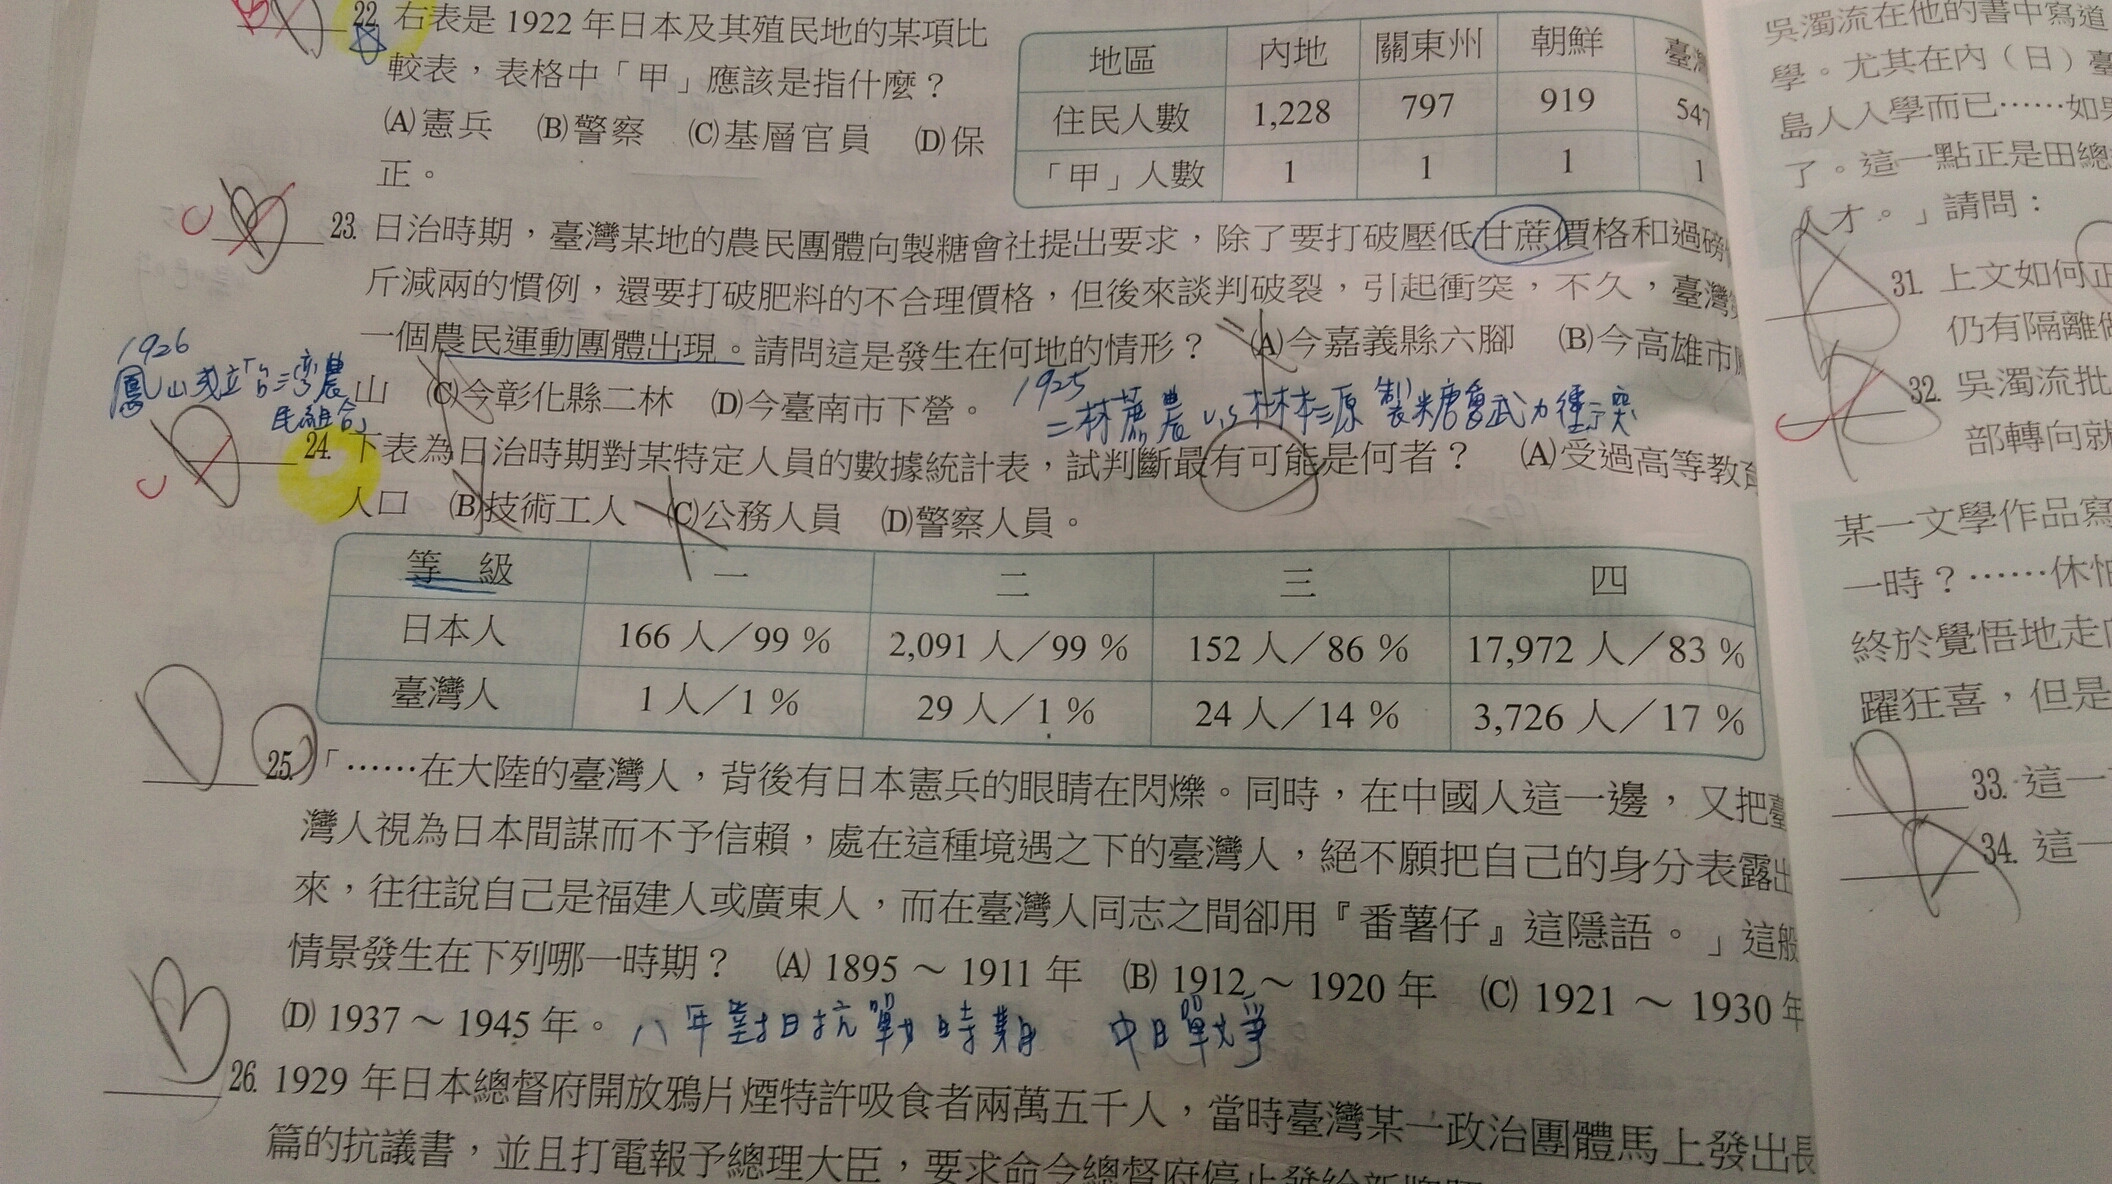 22. 右表是 1922 年日本及其殖民地的某項比
較表，表格中「甲」應該是指什麼？
(A)憲兵 (B)警察 (C)基層官員 (D)保
正。
地區 內地 關東州 朝鮮
住民人數 1,228 797 919 547
「甲」人數 1 1 1 1
C
23. 日治時期，臺灣某地的農民團體向製糖會社提出要求，除了要打破壓低甘蔗價格和過磅
斤減兩的慣例，還要打破肥料的不合理價格，但後來談判破裂，引起衝突，不久，臺灣
一個農民運動團體出現。請問這是發生在何地的情形？ (A)今嘉義縣六腳 (B)今高雄市
山 (C)今彰化縣二林 (D)今臺南市下營。
1926
鳳山成立「台灣農
民組合」
1925
二林蔗農 vs 林本源 製糖會武力衝突
C
24. 下表為日治時期對某特定人員的數據統計表，試判斷最有可能是何者？ (A)受過高等教育
人口 (B)技術工人 (C)公務人員 (D)警察人員。
等級 一 二 三 四
日本人 166 人／99 % 2,091 人／99 % 152 人／86 % 17,972 人／83 %
臺灣人 1 人／1 % 29 人／1 % 24 人／14 % 3,726 人／17 %
D
25. 「……在大陸的臺灣人，背後有日本憲兵的眼睛在閃爍。同時，在中國人這一邊，又把臺
灣人視為日本間諜而不予信賴，處在這種境遇之下的臺灣人，絕不願把自己的身分表露出
來，往往說自己是福建人或廣東人，而在臺灣人同志之間卻用『番薯仔』這隱語。」這般
情景發生在下列哪一時期？ (A) 1895 ～ 1911 年 (B) 1912 ～ 1920 年 (C) 1921 ～ 1930 年
(D) 1937 ～ 1945 年。
八年對日抗戰時期 中日戰爭
B
26. 1929 年日本總督府開放鴉片煙特許吸食者兩萬五千人，當時臺灣某一政治團體馬上發出長
篇的抗議書，並且打電報予總理大臣，要求命令總督府停止發給新牌照
吳濁流在他的書中寫道
學。尤其在內（日）臺
島人入學而已……如果
了。這一點正是田總
人才。」請問：
31. 上文如何正
仍有隔離
32. 吳濁流批
部轉向就
某一文學作品寫
一時？……休怕
終於覺悟地走向
躍狂喜，但是
33. 這一
34. 這一